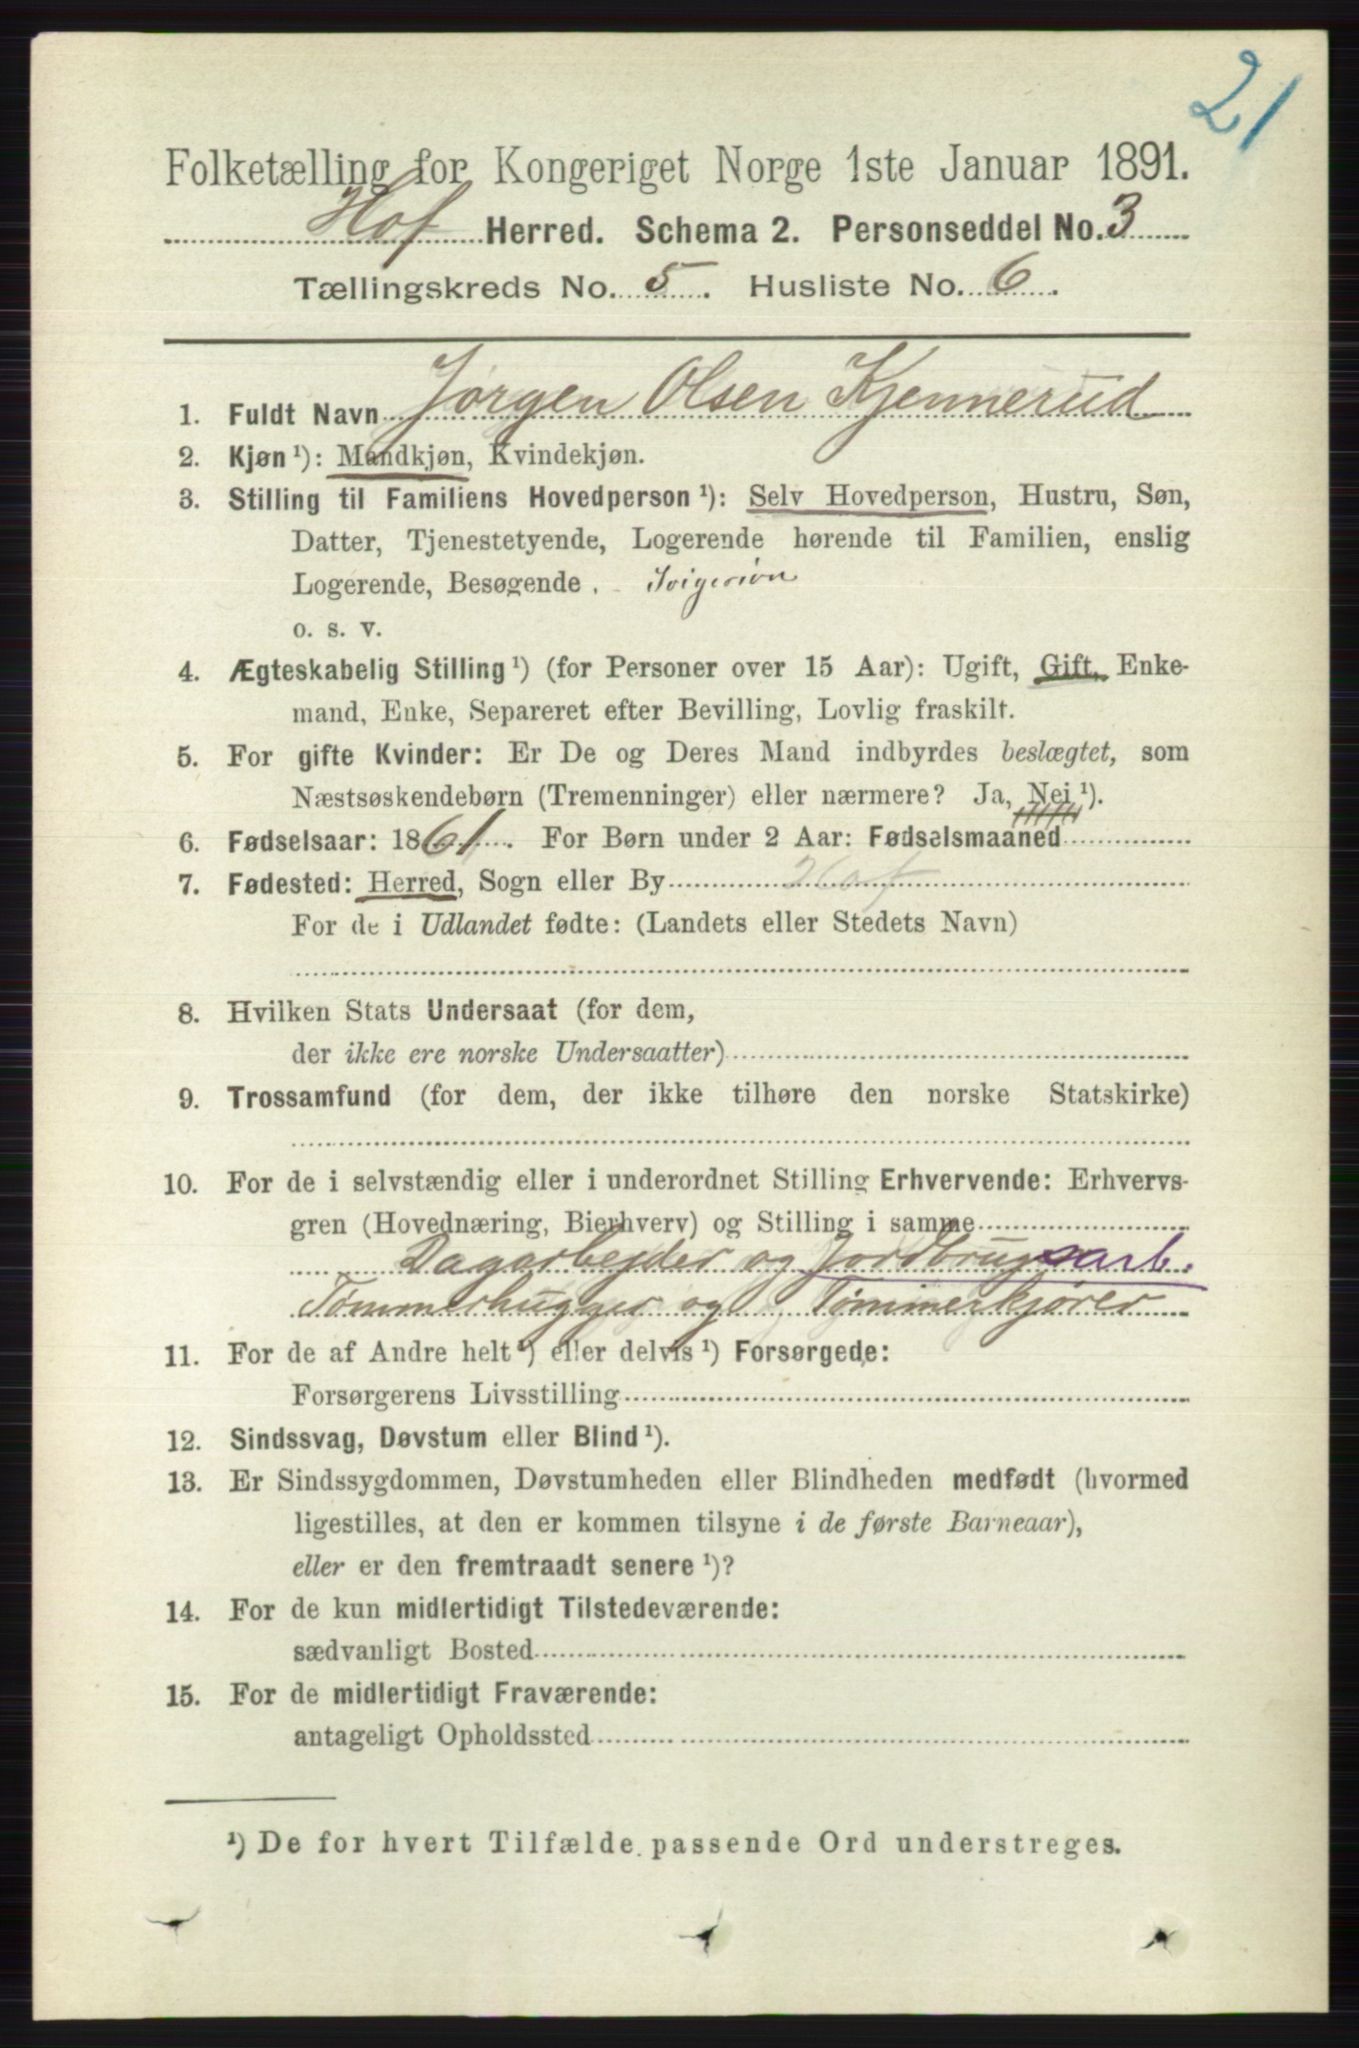 21
Folketælling for Kongeriget Norge 1ste Januar 1891.
Hof Herred. Schema 2. Personseddel No. 3
Tællingskreds No. 5. Husliste No. 6.
1. Fuldt Navn Jørgen Olsen Kjennerud
2. Kjøn ¹): Mandkjøn, Kvindekjøn.
3. Stilling til Familiens Hovedperson ¹): Selv Hovedperson, Hustru, Søn,
Datter, Tjenestetyende, Logerende hørende til Familien, enslig
Logerende, Besøgende . Svigersøn
o. s. v.
4. Ægteskabelig Stilling ¹) (for Personer over 15 Aar): Ugift, Gift, Enke-
mand, Enke, Separeret efter Bevilling, Lovlig fraskilt.
5. For gifte Kvinder: Er De og Deres Mand indbyrdes beslægtet, som
Næstsøskendebørn (Tremenninger) eller nærmere? Ja, Nei ¹).
6. Fødselsaar: 1861. For Børn under 2 Aar: Fødselsmaaned
7. Fødested: Herred, Sogn eller By Hof
For de i Udlandet fødte: (Landets eller Stedets Navn)
8. Hvilken Stats Undersaat (for dem,
der ikke ere norske Undersaatter)
9. Trossamfund (for dem, der ikke tilhøre den norske Statskirke)
10. For de i selvstændig eller i underordnet Stilling Erhvervende: Erhvervs-
gren (Hovednæring, Bierhverv) og Stilling i samme
Dagarbejder og Jordbrugsarb.
Tømmerhugger og Tømmerkjører
11. For de af Andre helt ¹) eller delvis ¹) Forsørgede:
Forsørgerens Livsstilling
12. Sindssvag, Døvstum eller Blind ¹).
13. Er Sindssygdommen, Døvstumheden eller Blindheden medfødt (hvormed
ligestilles, at den er kommen tilsyne i de første Barneaar),
eller er den fremtraadt senere ¹)?
14. For de kun midlertidigt Tilstedeværende:
sædvanligt Bosted
15. For de midlertidigt Fraværende:
antageligt Opholdssted
¹) De for hvert Tilfælde passende Ord understreges.